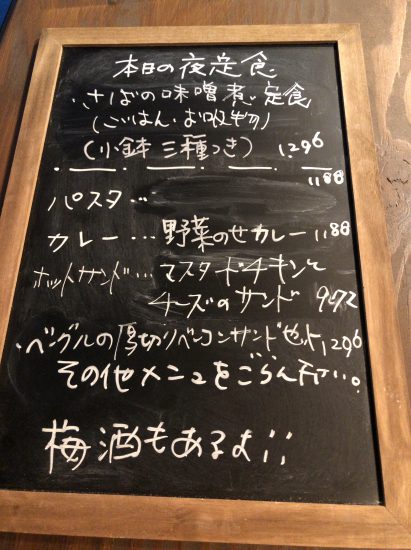 本日の夜定食
・さばの味噌煮定食
(ごはん・お吸物)
(小鉢三種つき) 1,296
1,188
パスタ…
カレー…野菜のせカレー 1,188
ホットサンド…マスタードチキンと
チーズのサンド 972
・ベーグルの厚切りベーコンサンドセット 1,296
その他メニューをごらん下さい。
梅酒もあるよ!!